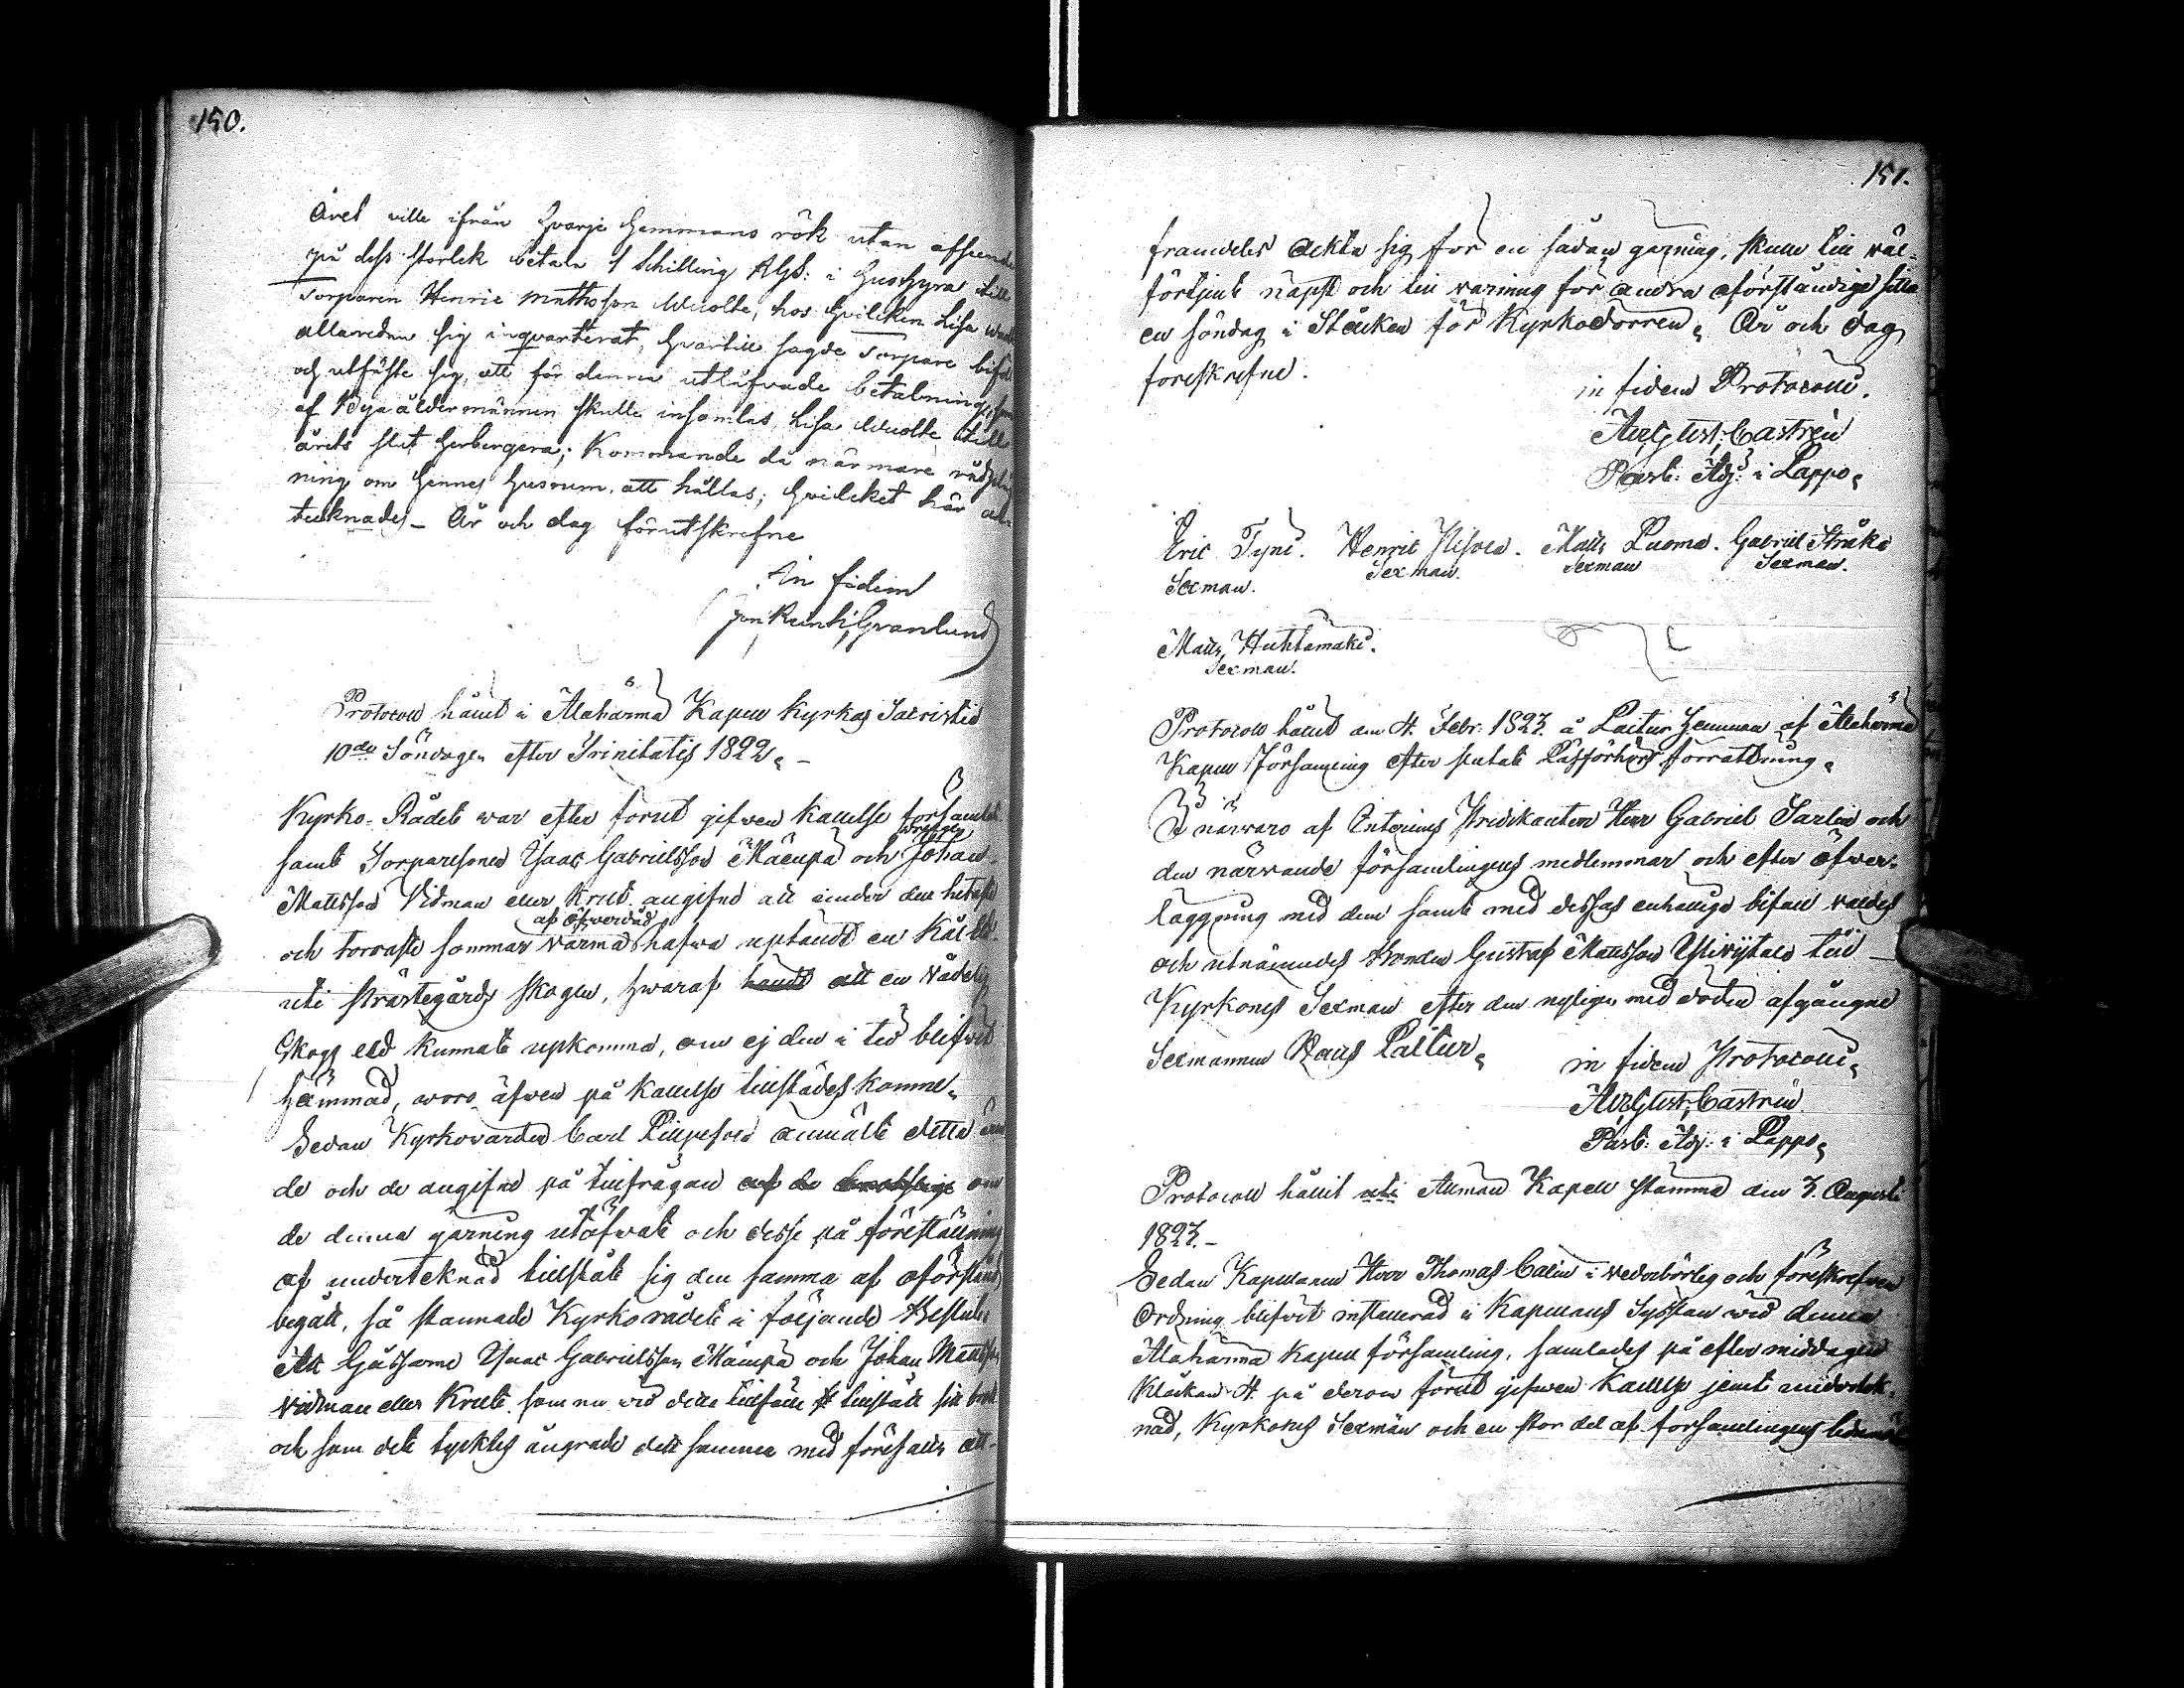 150.
Året ville ifrån hvarje Hemmans rök utan afseende
på dess storlek betala 1 Schilling Rgs: i Hushyra till
Torparen Henric Mathsson Wuolte, hos hvilken Lisa
allaredan sig inqvarterat, hvartill sagde Torpare bifall
och utfäste sig, att för denna utlåfvade betalning, som
af Byaåldermännen skulle insamlas, Lisa Wuolte till
årets slut herbergera; Kommande då närmare
ning om hennes husrum, att hållas; hvilcket här an-
tecknades_ År och dag förutskrefne
In fidem
Granlund
Protocoll hållit i Alahärmä Kapell Kyrkas Sacristia
10de Söndagen efter Trinitatis 1822. –
Kyrko-Rådet war efter forut gifwen Kallelse församlat
samt Torparesonen Isaac Gabrielsson Mäenpä och drengen Johan
Mattsson Vidman eller Krut angifne att under den hetaste
och torraste sommar värma af öfverdåd hafwa uptändt en
uti Prästegårds skogen, hwaraf haudt att en vådelig
Skogs eld kunnat upkomma, om ej den i tid blifvit
hämmad, woro äfwen på kallelse tillstädes komne.
Sedan Kyrkovärden Carl Pilpesoia anmält detta
de och de angifne på tillfrågan af de om
de denna gärning utöfwat och desse på föreställning
af undertecknad tillstått sig den samma af oförstånd
begått, så stannade Kyrkorådet i följande Beslut:
Att Gåssarne Isaac Gabrielsson Mäenpä och Johan Mattsson
Vidman eller Krut som nu vid detta tillfälle tillstått sit brott
och som det tycktes ångrade det samma med föresatts att
151.
framdeles ackta sig för en sådan gerning, skulle till väl-
förtjent näpst och till varning för andra oförståndige sitta
en söndag i Stocken för Kyrkodörren. År och dag
foreskrefne.
in fidem Protocolli.
Aug Gust: Castrén
Past: Adj: i Lappo.
Eric Tyni. Henric Pesola. Matts Luoma. Gabriel Stråka
Sexman. Sexman. Sexman Sexman.
Matts Huhtamäki.
Sexman.
Protocoll hållit den 4. Febr: 1823. å Laitur hemman af Alahärmä
Kapell Församling efter slutat Läsförhörs förrättning.
I närvaro af Enterims Predikanten Herr Gabriel Sarlin och
den närvande församlingens medlemmar och efter öfwer-
läggning med dem samt med dessas enhällige bifall valdes
och utnämndes Bonden Gustaf Mattsson Yliviitala till
Kyrkones Sexman efter den nyligen med döden afgångne
Sexmannen Hans Laitur.
in fidem Protocolli.
Aug Gust: Castrén
Past: Adj: i Lappo.
Protocoll hållit uti Allmän Kapell stämma den 3. Augusti
1823. –
Sedan Kapellanen Herr Thomas Calin i vederbörlig och föreskrefven
Ordning blifvit installerad i Kapellans Sysslan wid denna
Alahärmä Kapell församling, samlades på efter middagen
Klockan 4. på derom förut gifwen kallelse jemte undertek-
nad, Kyrkones Sexmän och en stor del af församlingens